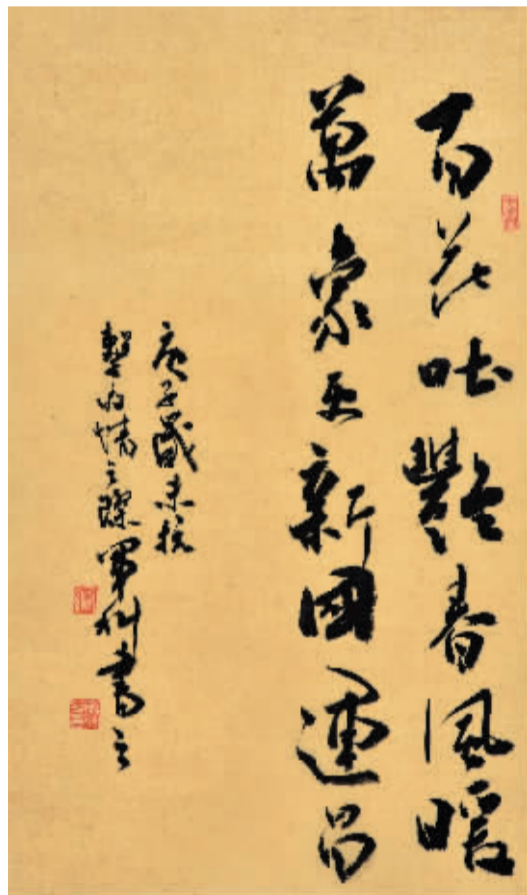 百花吐艷春風暖
萬象更新國運昌
庚子歲末抗
擊的情之際軍利書之